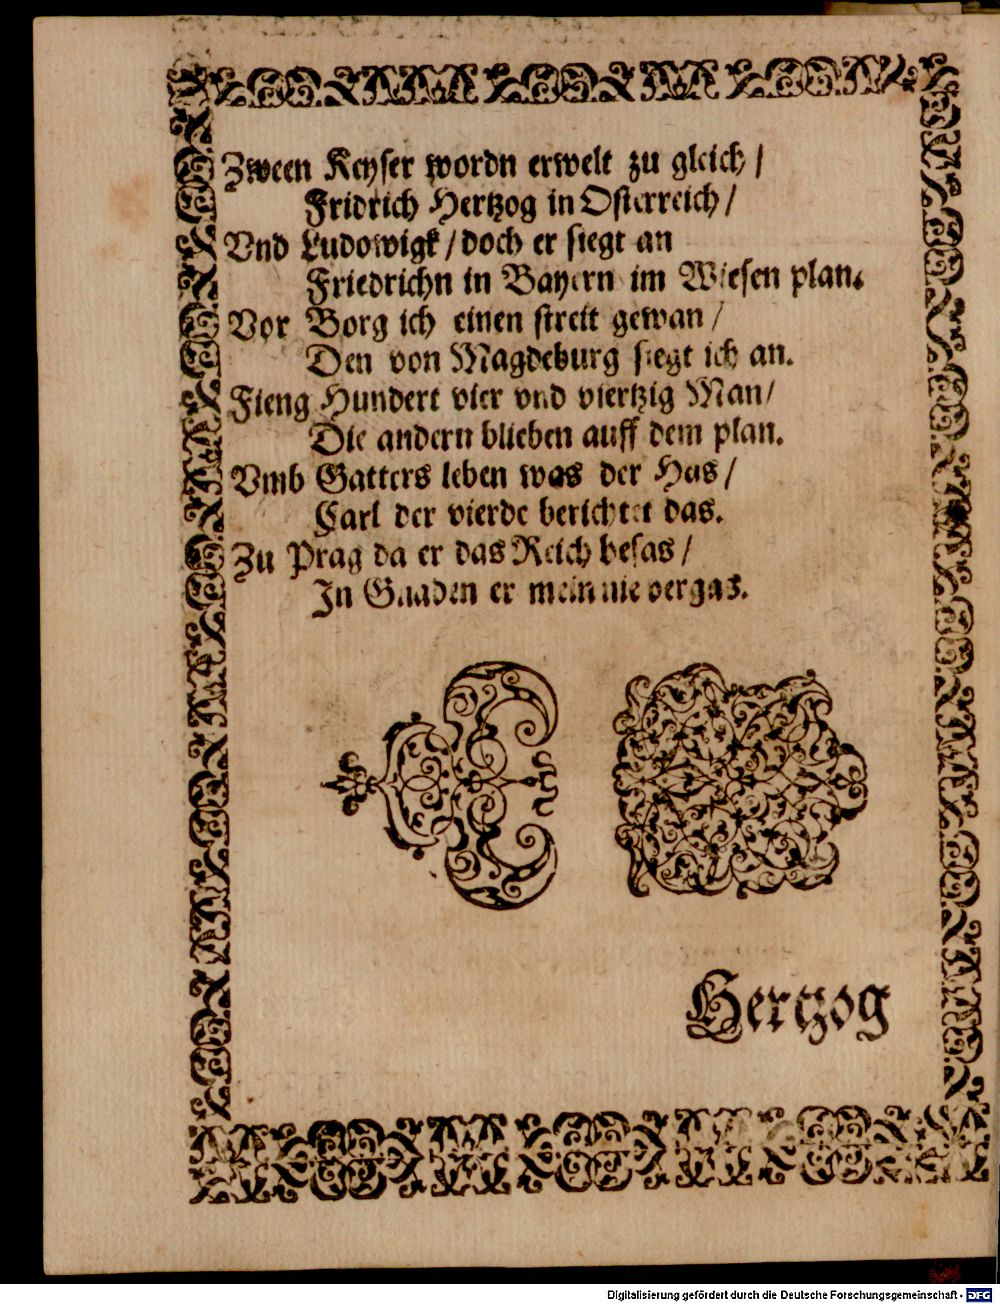 Zween Keyser wordn erwelt zu gleich /
Fridrich Hertzog in Osterreich /
Vnd Ludowigk / doch er siegt an
Friedrichn in Bayern im Wiesen plan.
Vor Borg ich einen streit gewan /
Den von Magdeburg siegt ich an.
Fieng Hundert vier vnd viertzig Man /
Die andern blieben auff dem plan.
Vmb Gatters leben was der Has /
Carl der vierde berichtet das.
Zu Prag da er das Reich besas /
In Gnaden er mein nie vergas.
Hertzog
Digitalisierung gefördert durch die Deutsche Forschungsgemeinschaft - DFG